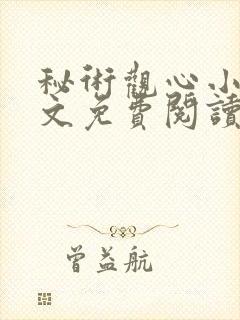 秘術觀心小
文免費閱讀
曾益航